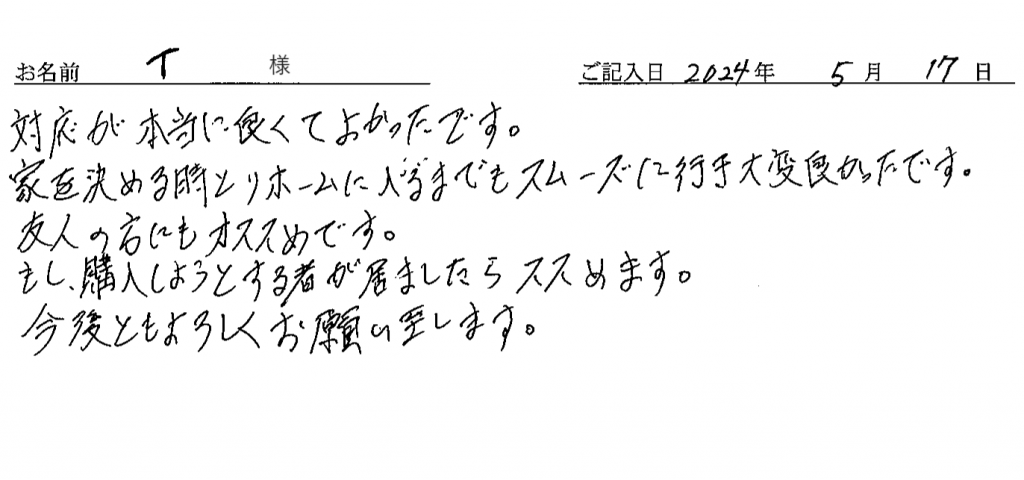 お名前 T 様 ご記入日 2024年 5月 17日
対応が本当に良くてよかったです。
家を決める時とリホームに入るまでもスムーズに行き大変良かったです。
友人の方にもオススめです。
もし、購入しようとする者が居ましたらススめます。
今後ともよろしくお願い致します。